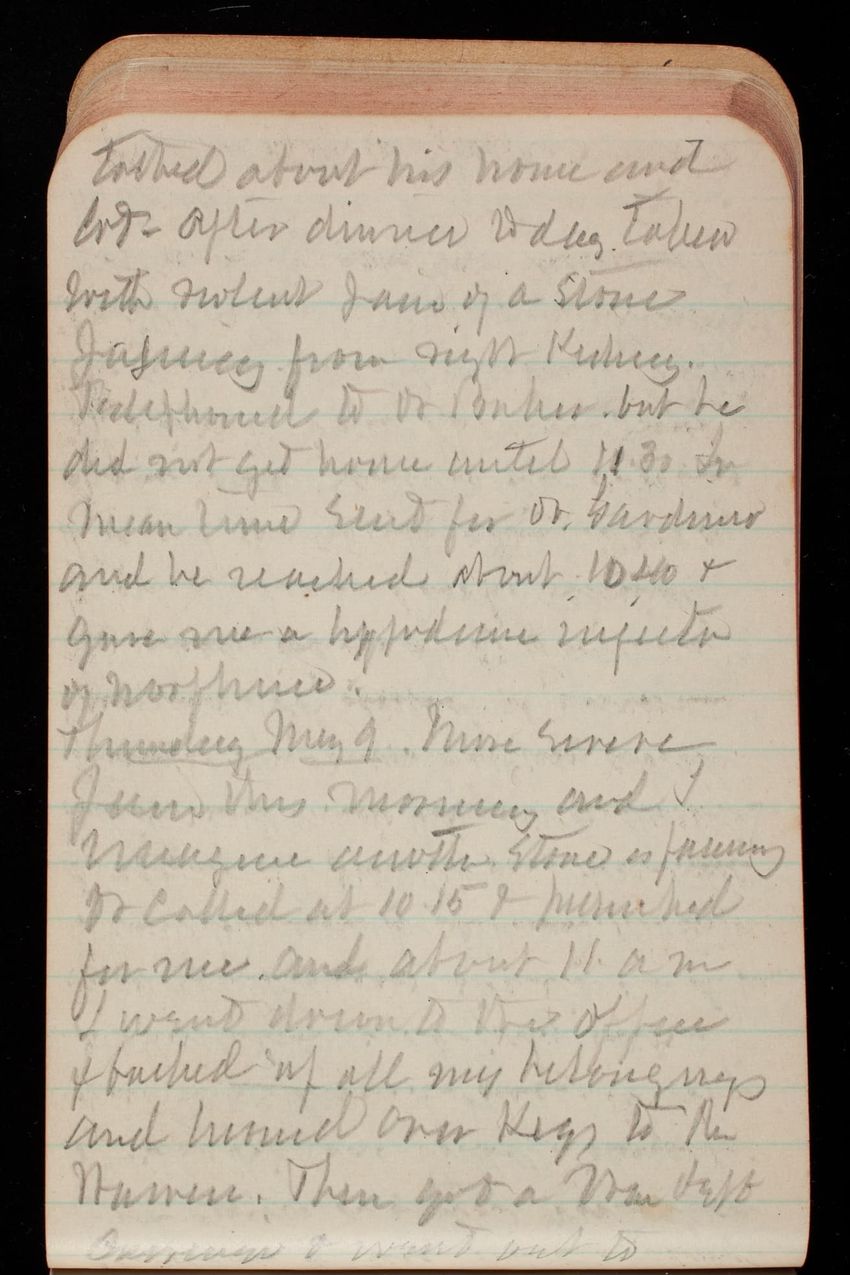 talked about his home and
lot - After dinner today taken
with violent pain of a stone
passing from right Kidney.
Telephoned to Dr Parker but he
did not get home until 11 30 In
mean time sent for Dr. Gardiner
and he reached about 10 40 &
gave me a hypodermic injection
of morphine.
Thursday May 9. More severe
pain this morning and I
imagine another stone is passing
Dr called at 10 15 & prescribed
for me and about 11 a m
I went down to the office
& packed up all my belongings
and turned over Keys to
Warren. Then got a War Dept
carriage & went out to